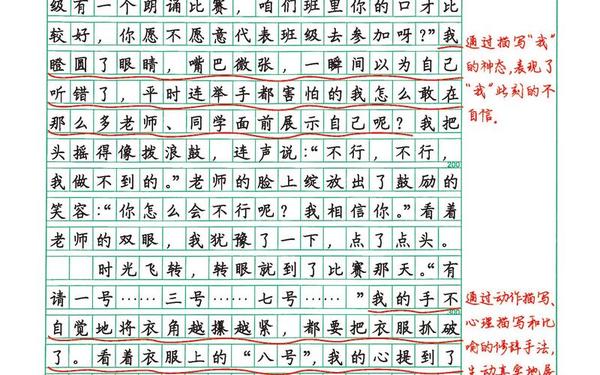 级有一个朗诵比赛，咱们班里你的口才比
较好，你愿不愿意代表班级去参加呀？”我
瞪圆了眼睛，嘴巴微张，一瞬间以为自己
听错了，平时连举手都害怕的我怎么敢在
那么多老师、同学面前展示自己呢？我把
头摇得像拨浪鼓，连声说：“不行，不行，
200
我做不到的。”老师的脸上绽放出了鼓励的
笑容：“你怎么会不行呢？我相信你。”看着
老师的双眼，我犹豫了一下，点了点头。
时光飞转，转眼就到了比赛那天。“有
请一号……三号……七号……”我的手不
300
自觉地将衣角越攥越紧，都要把衣服抓破
了。看着衣服上的“八号”，我的心提到了
通过描写“我”
的神态，表现了
“我”此刻的不
自信。
通过动作描写、
心理描写和比
喻的修辞手法，
生动真实地展